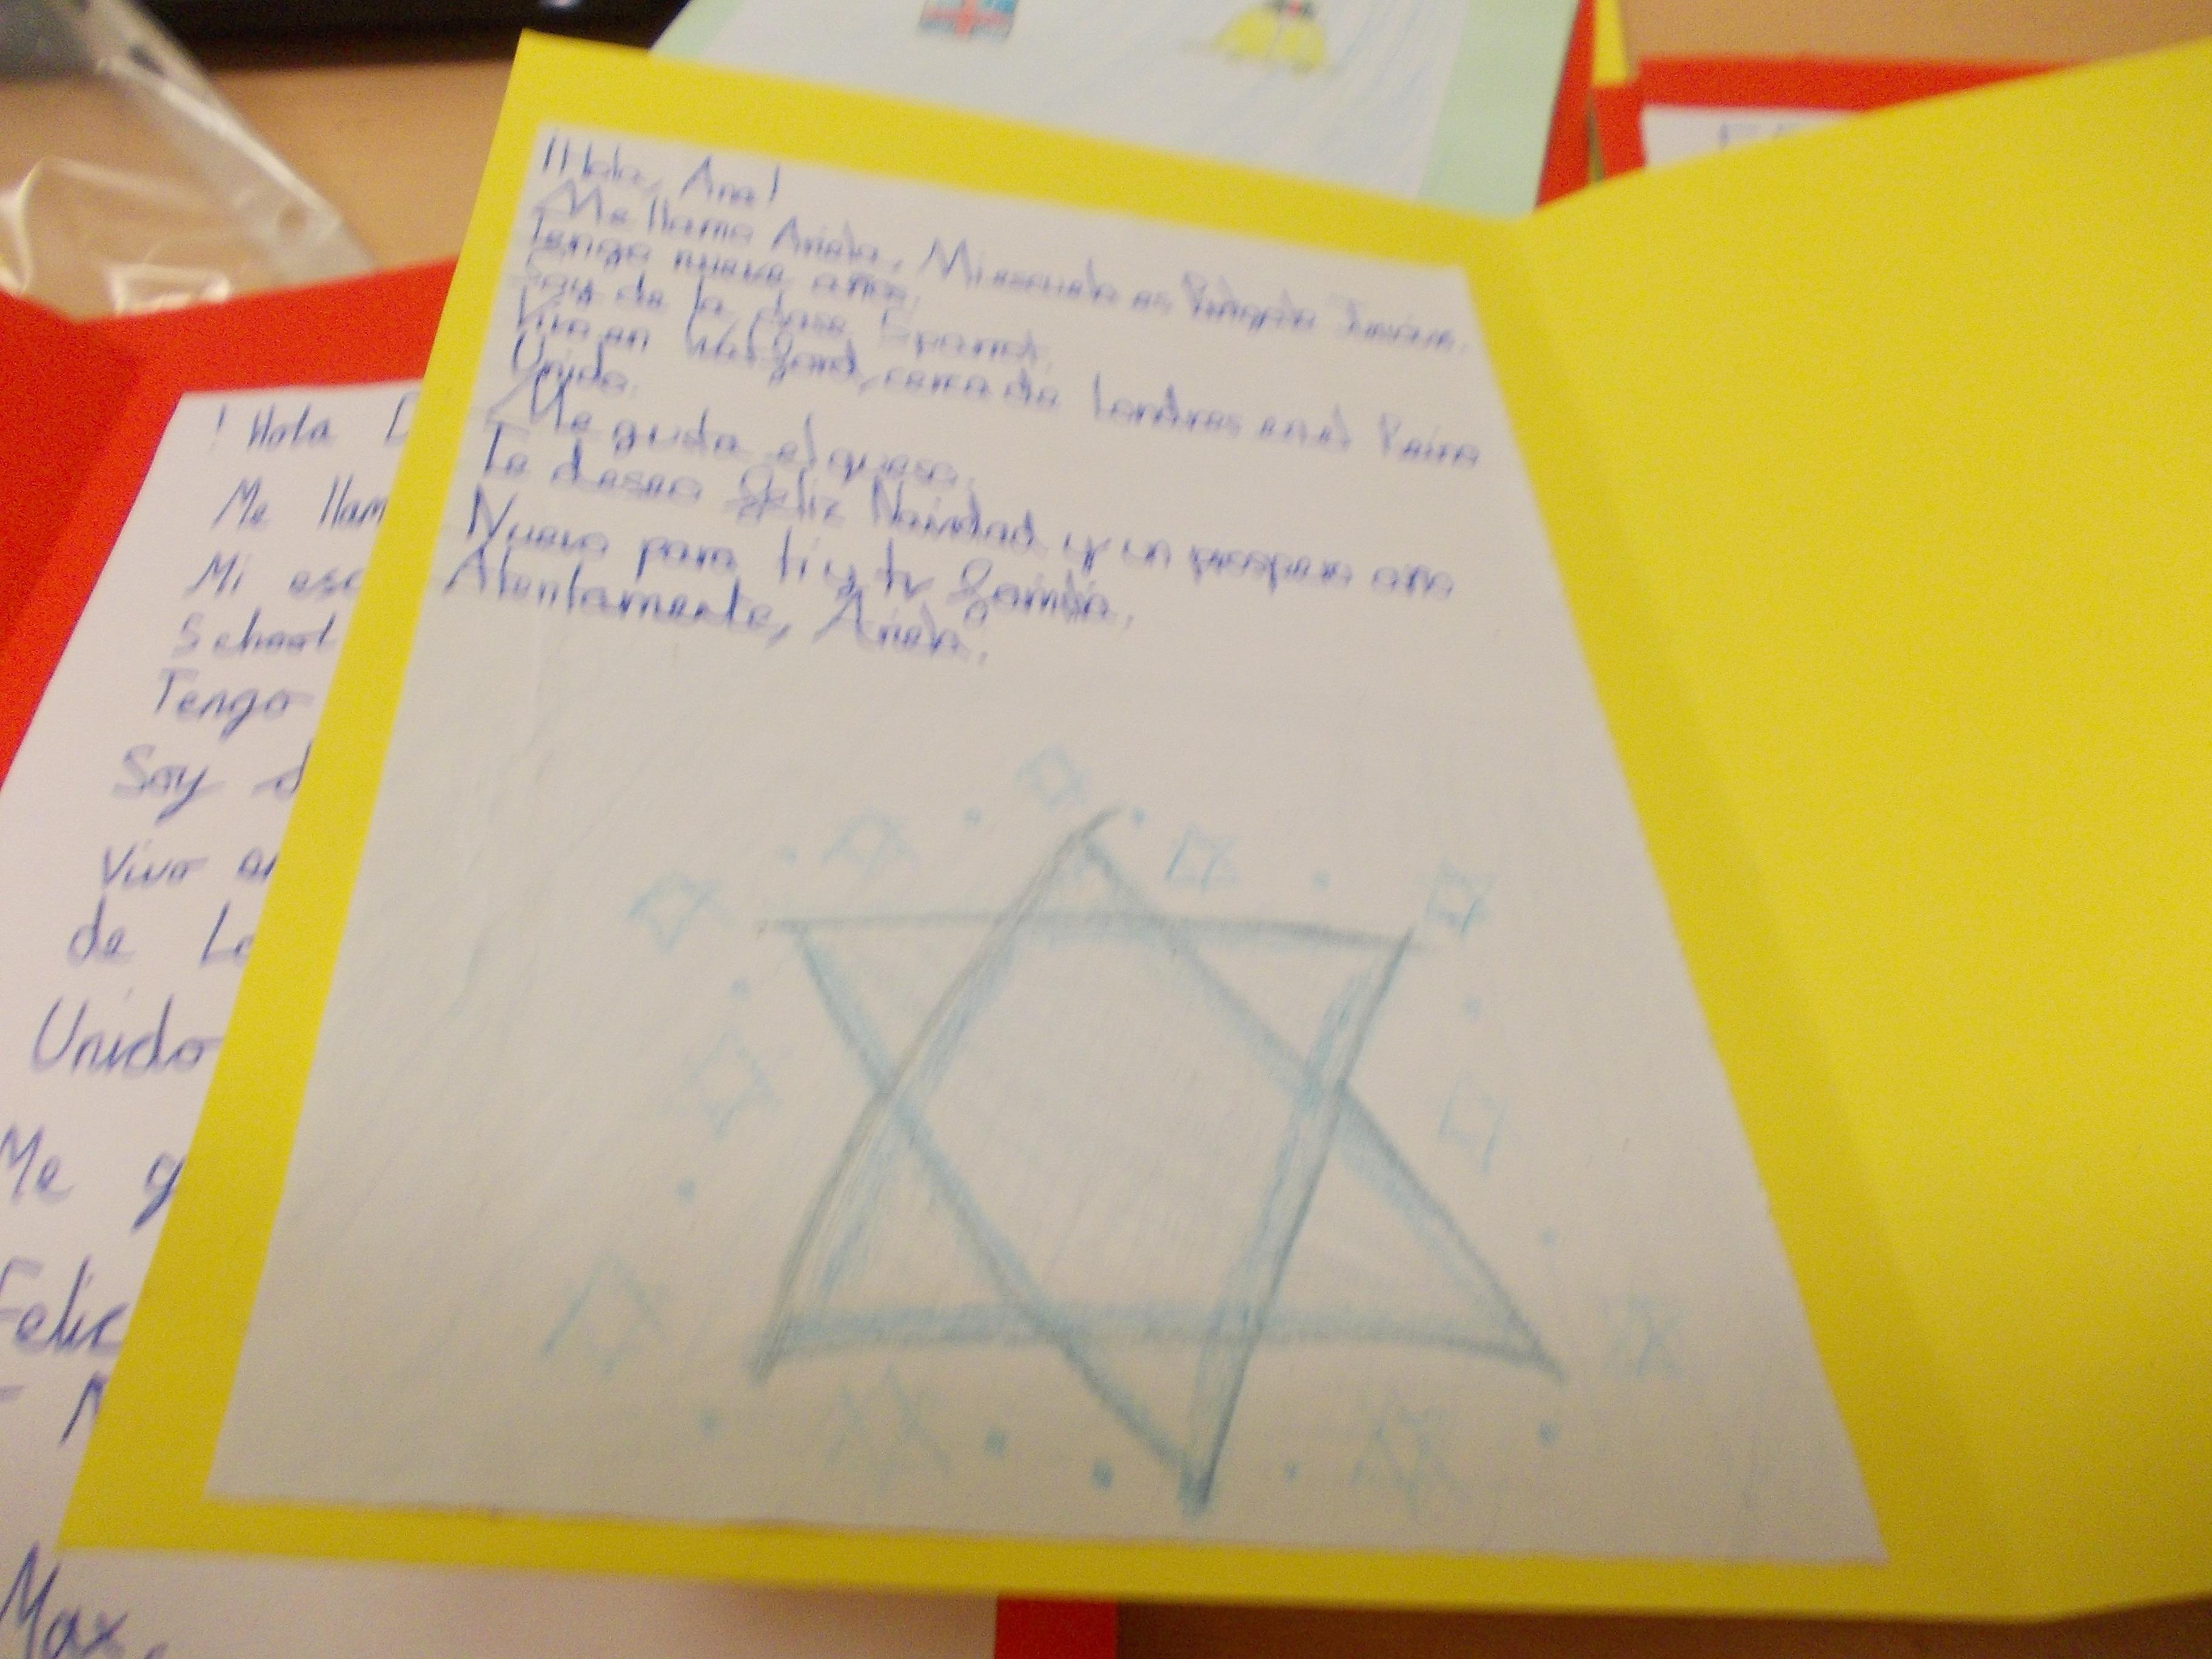 ¡Hola, Ana!
Me llamo Ariela. Mi escuela es Junior.
Tengo nueve años.
Soy de la clase
Vivo en Watford, cerca de Londres en el Reino
Unido.
Me gusta el queso.
Te deseo feliz Navidad y un prospero año
Nuevo para ti y tu familia.
Atentamente, Ariela.
! Hola
Me llam
Mi esc
School
Tengo
Soy d
Vivo en
de Lo
Unido
Me g
Feliz
Max.